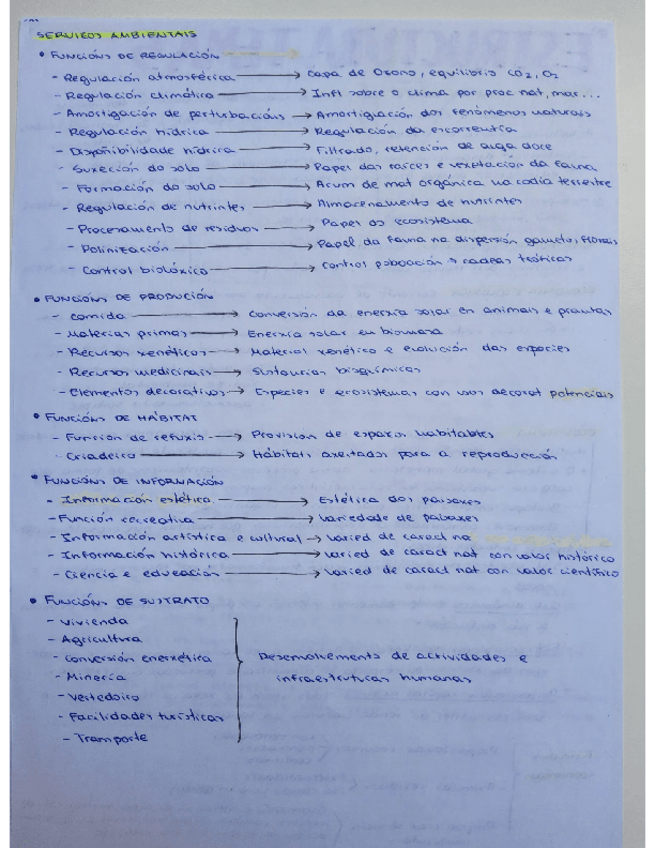 SERVIZOS AMBIENTAIS
• FUNCIÓNS DE REGULACIÓN
- Regulación atmosférica → Capa de Ozono, equilibrio CO2, O2
- Regulación climática → Infl sobre o clima por proc nat, mar...
- Amortigación de perturbacións → Amortiguación dos fenómenos naturais
- Regulación hídrica → Regulación da escorrentía
- Dispoñibilidade hídrica → Filtrado, retención de auga doce
- Suxeción do solo → Papel das raíces e vexetación da fauna
- Formación do solo → Acum de mat orgánica na codia terrestre
- Regulación de nutrintes → Almacenamento de nutrintes
- Procesamento de residuos → Papel do ecosistema
- Polinización → Papel da fauna na dispersión gameto, florais
- Control biolóxico → Control poboación e cadeas tróficas
• FUNCIÓNS DE PRODUCIÓN
- Comida → Conversión da enerxía solar en animais e prantas
- Materias primas → Enerxía solar en biomasa
- Recursos xenéticos → Material xenético e evolución das especies
- Recursos medicinais → Sustancias bioquímicas
- Elementos decorativos → Especies e ecosistemas con usos decorat potenciais
• FUNCIÓNS DE HÁBITAT
- Función de refuxio → Provisión de espazos habitables
- Criadeiro → Hábitats axeitados para a reproducción
• FUNCIÓNS DE INFORMACIÓN
- Información estética → Estética dos paisaxes
- Función recreativa → Variedade de paisaxes
- Información artística e cultural → Varied de caract na
- Información histórica → Varied de caract nat con valor histórico
- Ciencia e educación → Varied de caract nat con valor científico
• FUNCIÓNS DE SUSTRATO
- Vivienda
- Agricultura
- Conversión enerxética
- Minería
- Vertedoiro
- Facilidades turísticas
- Transporte
Desenvolvemento de actividades e
infraestruturas humanas